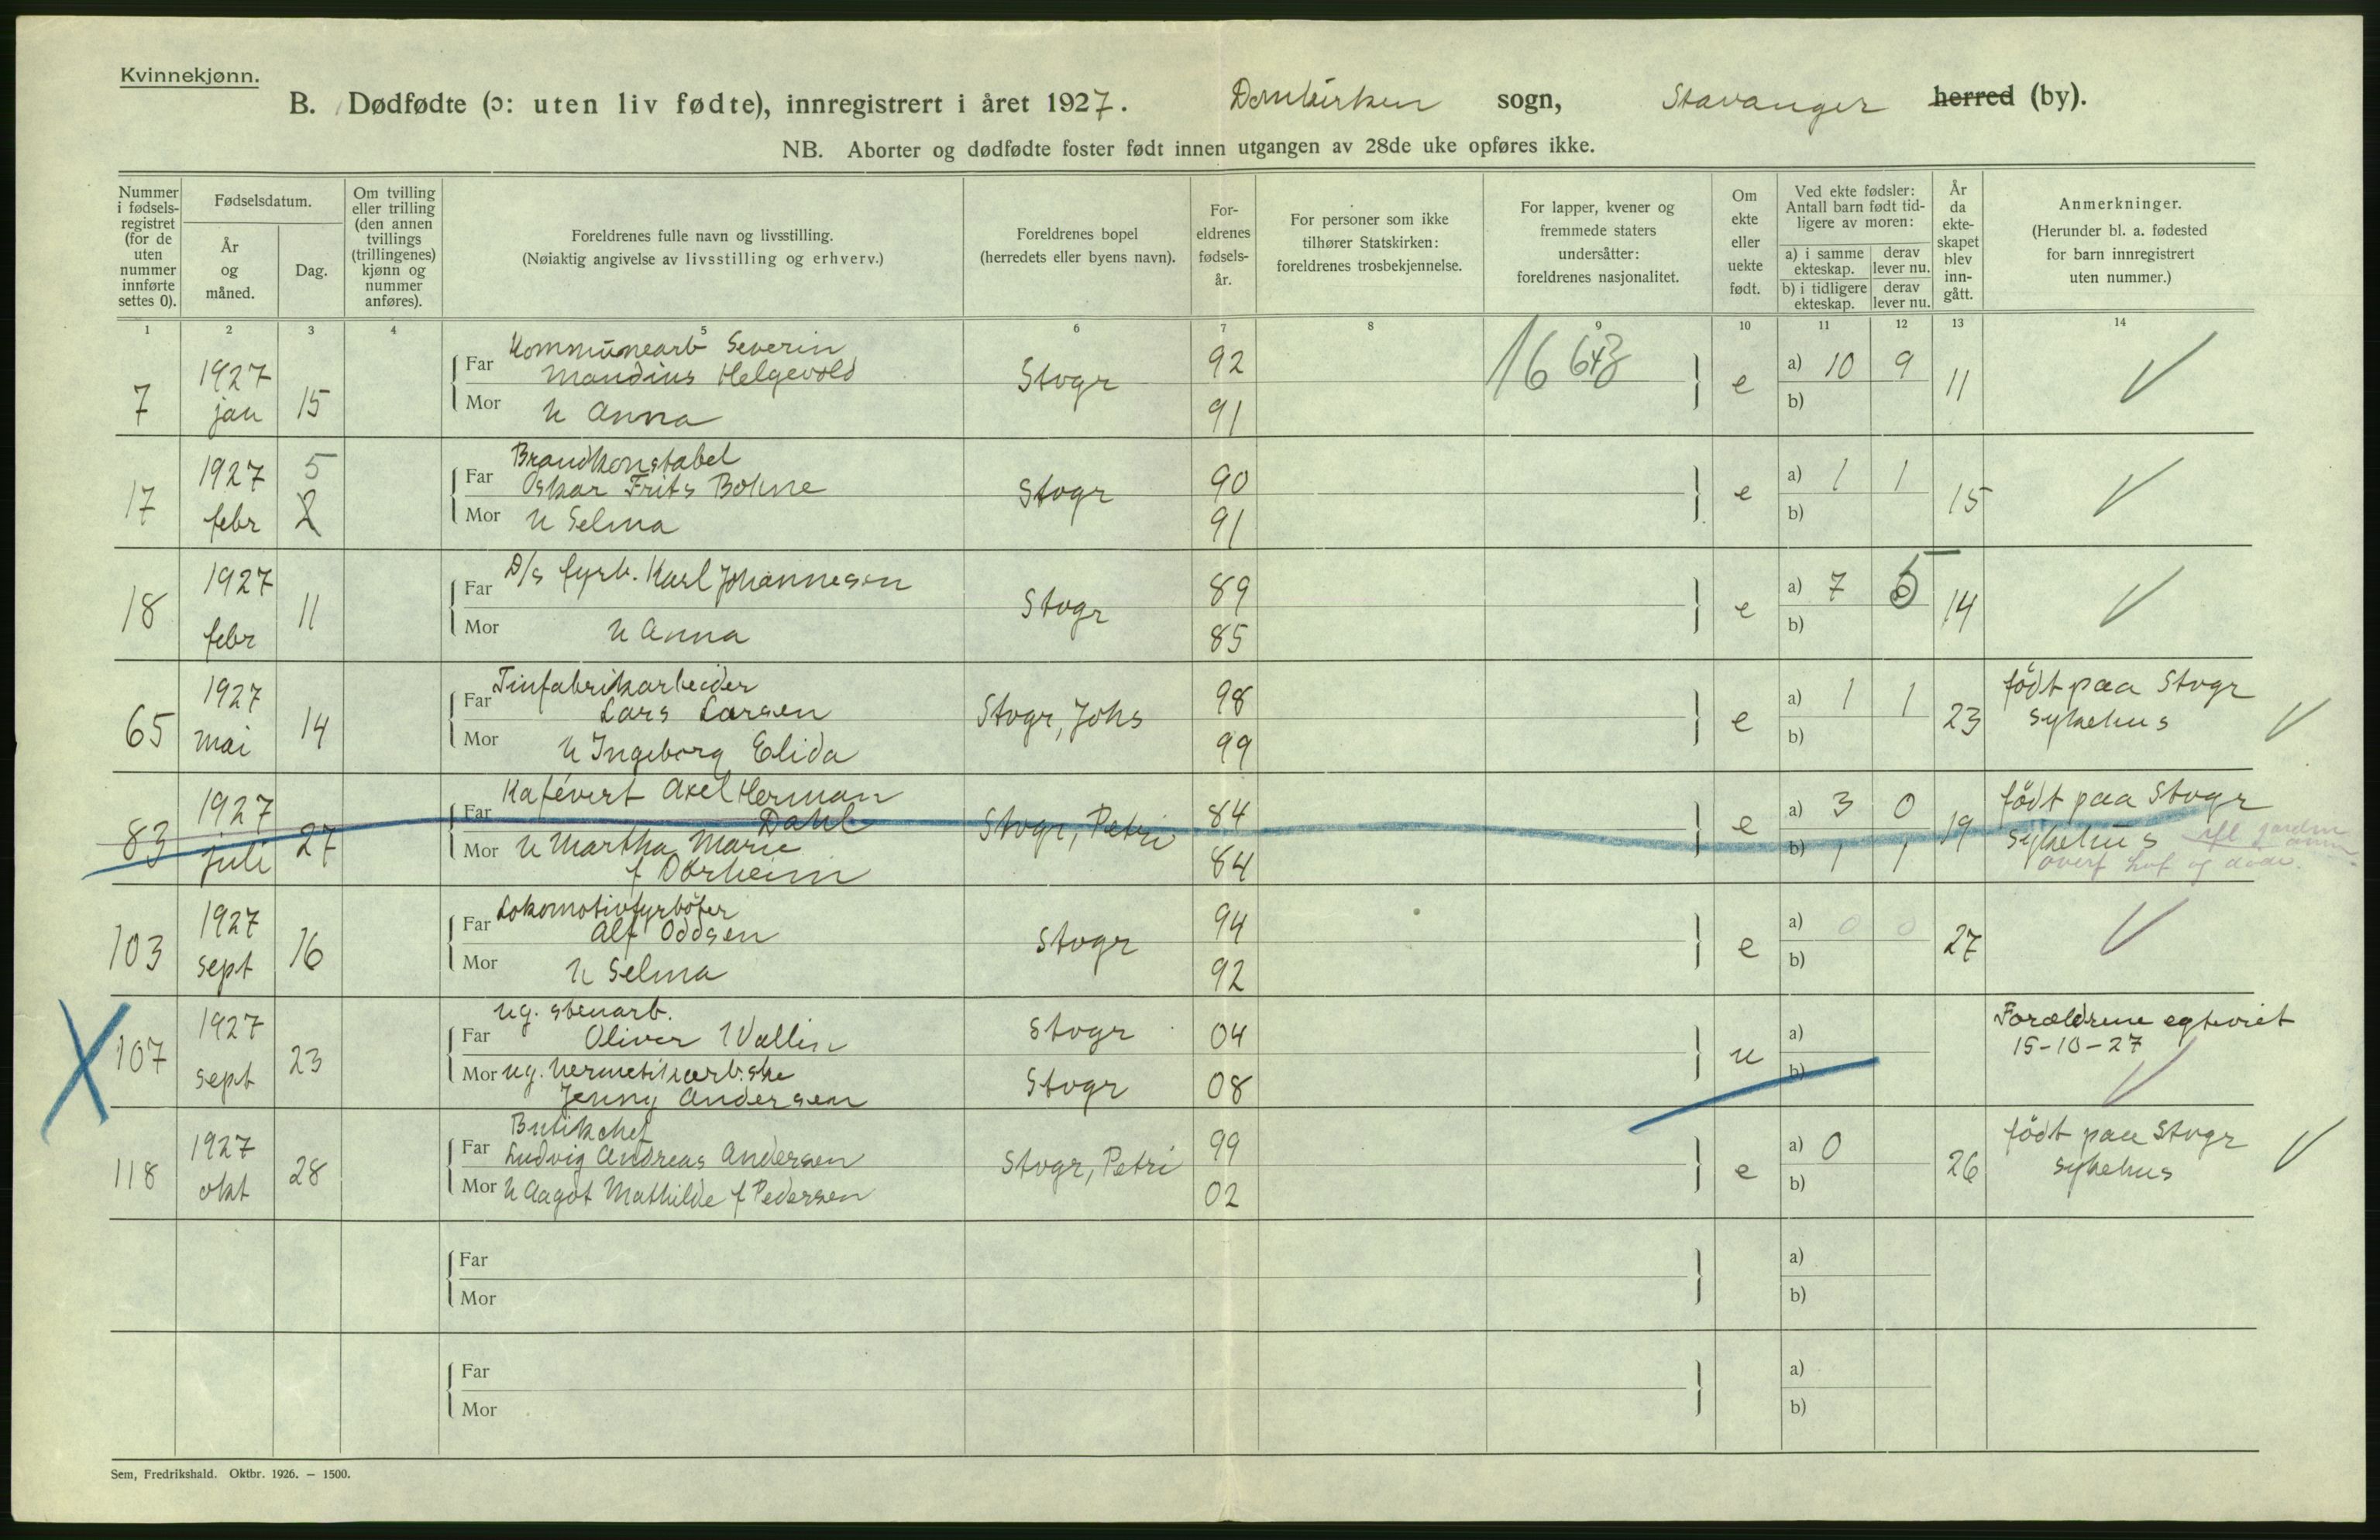 Kvinnekjønn.
B. Dødfødte (ɔ: uten liv fødte), innregistrert i året 1927. Domkirken sogn, Stavanger herred (by).
NB. Aborter og dødfødte foster født innen utgangen av 28de uke opføres ikke.
Nummer i fødsels-registret (for de uten nummer innførte settes 0).
Fødselsdatum.
År og måned.
Dag.
Om tvilling eller trilling (den annen tvillings (trillingenes) kjønn og nummer anføres).
Foreldrenes fulle navn og livsstilling.
(Nøiaktig angivelse av livsstilling og erhverv.)
Foreldrenes bopel
(herredets eller byens navn).
For-eldrenes fødsels-år.
For personer som ikke tilhører Statskirken:
foreldrenes trosbekjennelse.
For lapper, kvener og fremmede staters undersåtter:
foreldrenes nasjonalitet.
Om ekte eller uekte født.
Ved ekte fødsler:
Antall barn født tid-ligere av moren:
a) i samme ekteskap.
derav lever nu.
b) i tidligere ekteskap.
derav lever nu.
År da ekte-skapet blev inn-gått.
Anmerkninger.
(Herunder bl. a. fødested for barn innregistrert uten nummer.)
1 2 3 4 5 6 7 8 9 10 11 12 13 14
7 1927 jan 15
Far Kommunearb Severin
Mandius Helgevold
Mor u Anna
Stvgr 92 91 16 e a) 10 9 b) 11
17 1927 febr 5 2
Brandkonstabel
Far Oskar Frits Bohne
Mor u Selma
Stvgr 90 91 e a) 1 1 b) 15
18 1927 febr 11
Far D/s fyrb. Karl Johannesen
Mor u Anna
Stvgr 89 85 e a) 7 5 b) 14
65 1927 mai 14
Far Tinfabrikarbeider
Lars Larsen
Mor u Ingeborg Elida
Stvgr, Johs 98 99 e a) 1 1 b) 23
født paa Stvgr
sykehus
83 1927 juli 27
Kafévert Axel Herman
Far Dahl
Mor u Martha Marie
f Dørheim
Stvgr, Petri 84 84 e a) 3 0 b) 1 1 19
født paa Stvgr
sykehus
103 1927 sept 16
Far Lokomotivfyrbøter
Alf Oddsen
Mor u Selma
Stvgr 94 92 e a) 0 0 b) 27
107 1927 sept 23
ug. stenarb.
Far Oliver Wallin
Mor ug. hermetikarb.ske
Jenny Andersen
Stvgr 04
Stvgr 08
u a) b)
Forældrene egteviet
15-10-27
118 1927 okt 28
Butikchef
Far Ludvig Andreas Andersen
Mor u Aagot Mathilde f Pedersen
Stvgr, Petri 99 02 e a) 0 b) 26
født paa Stvgr
sykehus
Far
Mor
a)
b)
Far
Mor
a)
b)
Sem, Fredrikshald. Oktbr. 1926. — 1500.